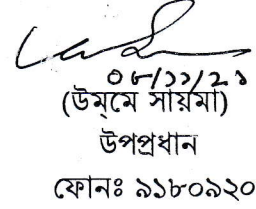 ০৮/১১/২১
(উম্মে সায়মা)
উপপ্রধান
ফোনঃ ৯১৮০৯২০